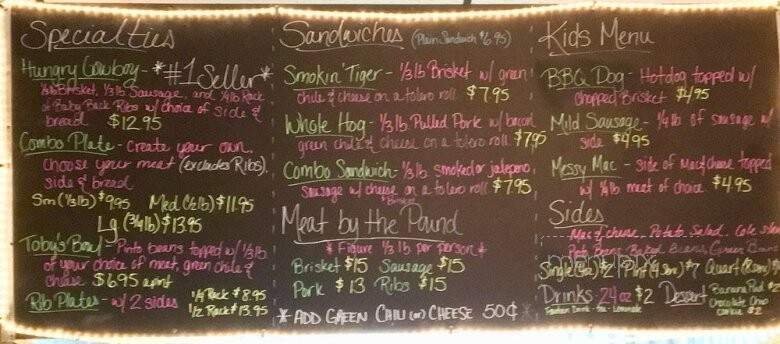 Specialties
Hungry Cowboy - *#1 Seller*
1/3 lb Brisket, 1/3 lb Sausage, and 1/4 lb Rack
of Baby Back Ribs w/ choice of side &
bread $12.95
Combo Plate - Create your own,
choose your meat (excludes Ribs),
side & bread
Sm (1/3 lb) $9.95 Med (1/2 lb) $11.95
Lg (3/4 lb) $13.95
Toby's Bowl - Pinto beans topped w/ 1/3 lb
of your choice of meat, green chile &
cheese $6.95
Rib Plates - w/ 2 sides 1/4 Rack $8.95
1/2 Rack $13.95
Sandwiches (Plain Sandwich $6.95)
Smokin' Tiger - 1/3 lb Brisket w/ green
chile & cheese on a tolero roll $7.95
Whole Hog - 1/3 lb Pulled Pork w/ bacon
green chile & cheese on a tolero roll $7.95
Combo Sandwich - 1/3 lb smoked or jalapeno
sausage w/ cheese on a tolero roll $7.95
Brisket
Meat by the Pound
* Figure 1/3 lb per person *
Brisket $15 Sausage $15
Pork $13 Ribs $15
* ADD GREEN CHILI (or) CHEESE 50¢ *
Kids Menu
BBQ Dog - Hotdog topped w/
chopped Brisket $4.95
Mild Sausage - 1/4 lb of sausage w/
side $4.95
Messy Mac - side of Mac & cheese topped
w/ 1/4 lb meat of choice $4.95
Sides
Mac & cheese Potato Salad Cole slaw
Pinto Beans Baked Beans Green
Single $2 Pint $7 Quart
Drinks - 24 oz $2 Dessert Banana Pud
Fountain Drink - Tea - Lemonade Chocolate Chip
cookie $2